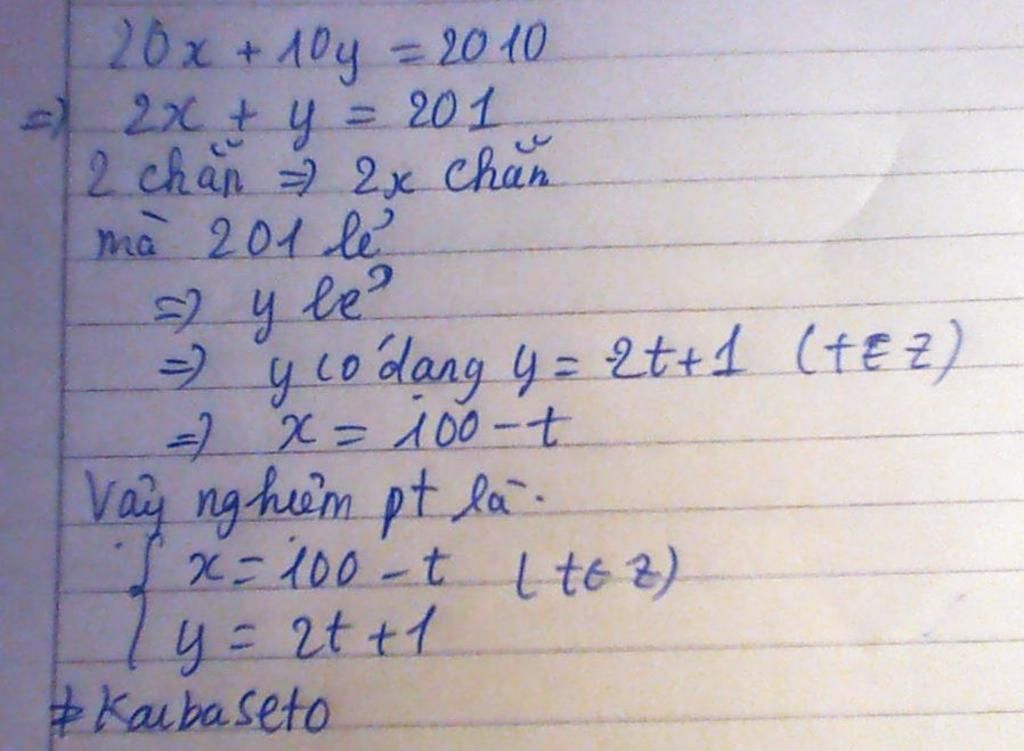 20x + 10y = 2010
=> 2x + y = 201
2 chẵn => 2x chẵn
mà 201 lẻ
=> y lẻ
=> y có dạng y = 2t+1 (t ∈ Z)
=> x = 100 - t
Vậy nghiệm pt là.
{ x = 100 - t (t ∈ Z)
y = 2t + 1
# Kaibaseto